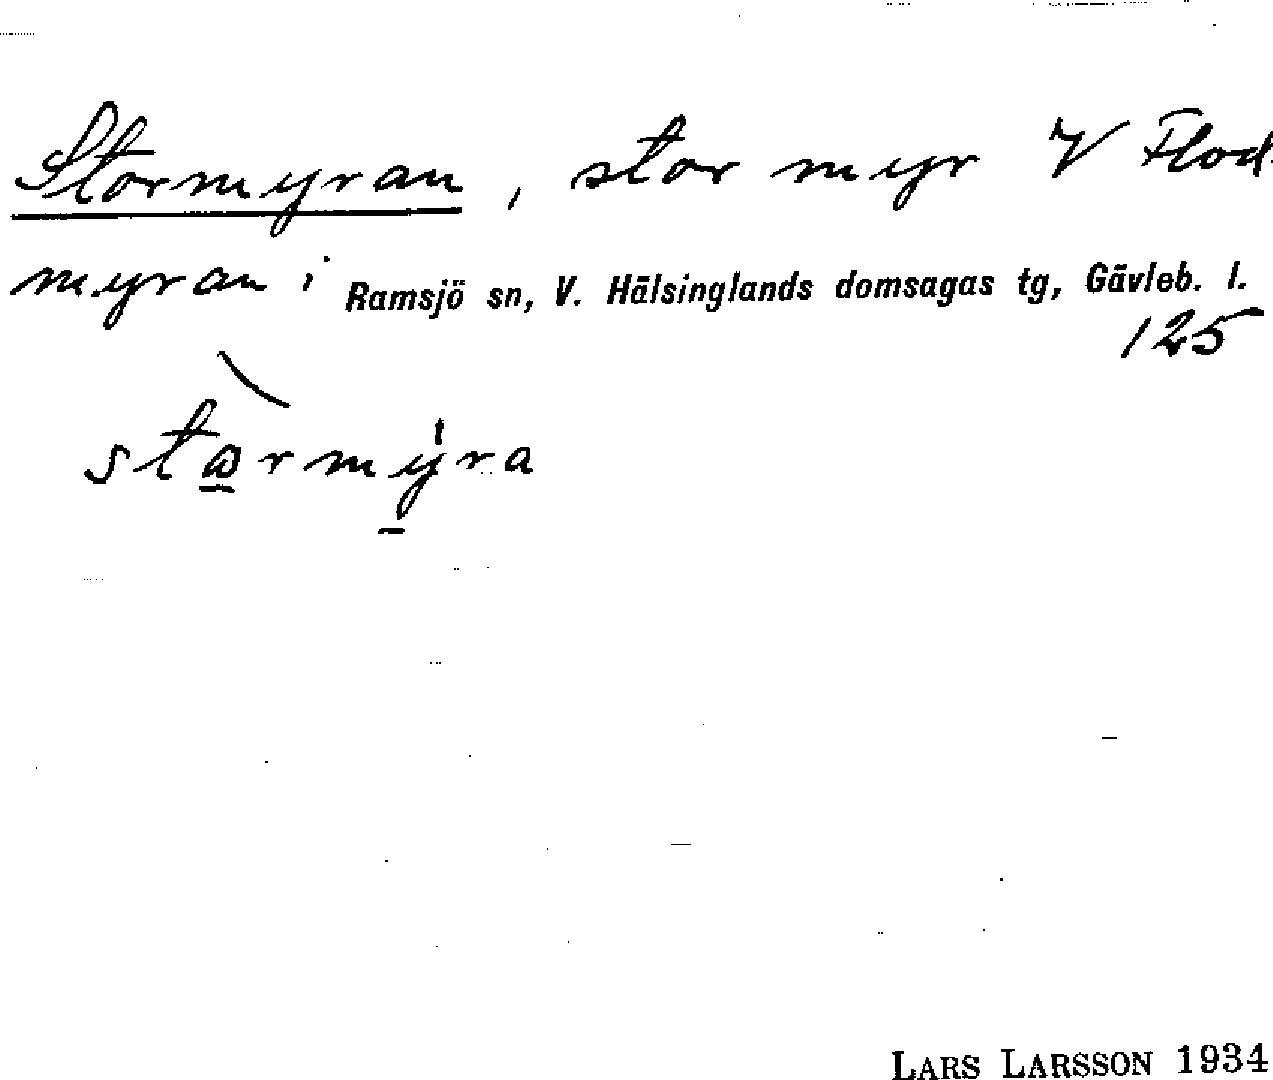 Stormyran, stor myr V Flod
myran i Ramsjö sn, V. Hälsinglands domsagas tg, Gävleb. l.
125
starmyra
LARS LARSSON 1934